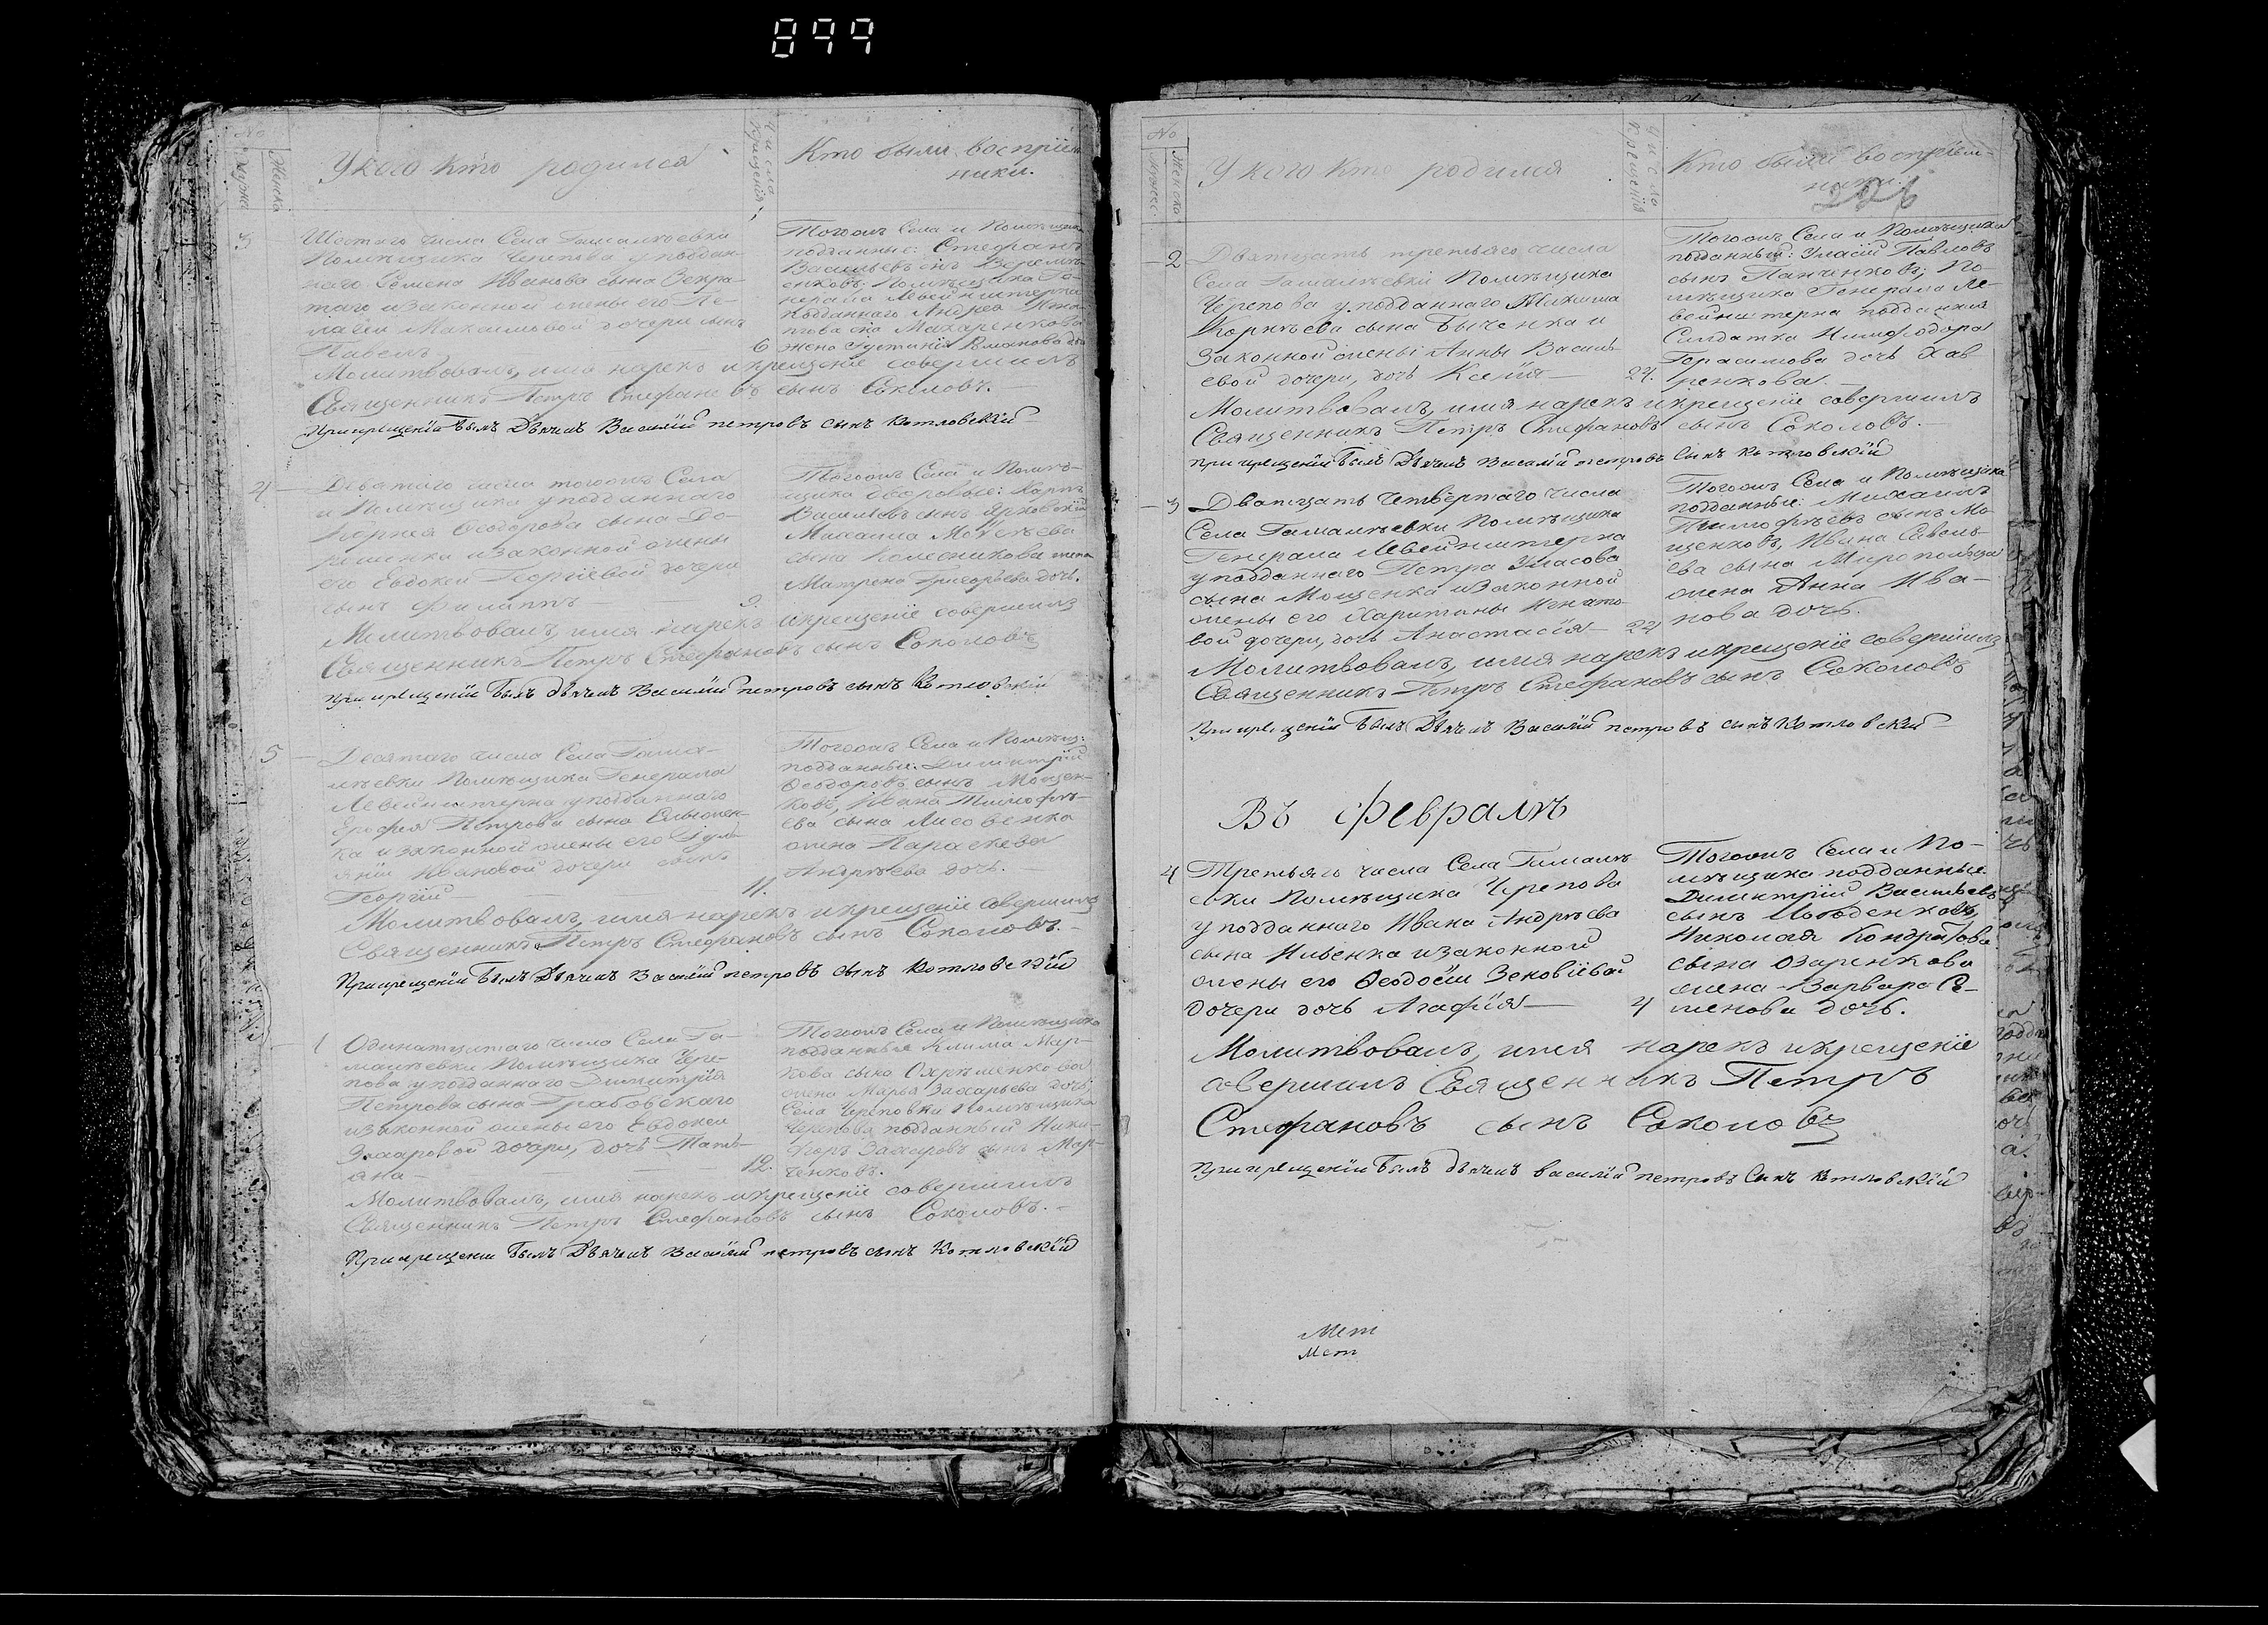 899
No
Мужеска
Женска
У кого кто родился
Числа Крещенія
Кто были воспріем-
ники.
3
Шестаго числа Села Гамалѣевки
Помѣщика Черепова у поддан-
наго Семена Иванова сына
таго и законной жены его Пе-
лагеи Максимовой дочери сынъ
Павелъ
6
Тогожъ Села и Помѣщика
подданные: Стефанъ
Васильевъ сынъ
енковъ, Помѣщика Ге-
нерала Левенштерна
подданнаго Андрея
сна Макаренкова
жена Іустинія Романова дочь
Молитвовалъ, имя нарекъ и крещеніе совершилъ
Священникъ Петръ Стефановъ сынъ Соколовъ.
При крещеніи былъ Дьячекъ Василій петровъ сынъ Котловскій
4
Девятаго числа тогожъ Села
и Помѣщика у подданнаго
Корнея Ѳеодорова сына До-
рошенка и законной жены
его Евдокеи Георгіевой дочери
сынъ Филиппъ
9.
Тогожъ Села и Помѣ-
щика дворовые: Карпъ
Васильевъ сынъ
Михаила Моѵсѣева
сына Колесникова жена
Матрена Григорьева дочь.
Молитвовалъ, имя нарекъ и крещеніе совершилъ
Священникъ Петръ Стефановъ сынъ Соколовъ
При крещеніи былъ дьячекъ Василій петровъ сынъ Котловскій
5
Десятаго числа Села Гама-
лѣевки Помѣщика Генерала
Левейнштерна у подданнаго
Ерофея Петрова сына
ка и законной жены его Іул-
яніи Ивановой дочери сынъ
Георгій
11.
Тогожъ Села и Помѣщ:
подданные: Димитрій
Ѳеодоровъ сынъ Мощен-
ковъ, Ивана Тимофѣ-
ева сына Лисовенка
жена Параскева
Андрѣева дочь.
Молитвовалъ, имя нарекъ и крещеніе совершилъ
Священникъ Петръ Стефановъ сынъ Соколовъ.
При крещеніи былъ Дьячекъ Василій петровъ сынъ Котловскій
1
Одинатцатаго числа Села Га-
малѣевки Помѣщика Чере-
пова у подданнаго Димитрія
Петрова сына Грабовскаго
и законной жены его Евдокеи
Захаровой дочери, дочь Тать-
яна
12.
Тогожъ Села и Помѣщика
подданные Клима Мар-
кова сына Охрѣменкова
жена Марья Захарьева дочь;
Села Череповки Помѣщика
Черепова подданный Ники-
форъ Захаровъ сынъ Мар-
ченковъ.
Молитвовалъ, имя нарекъ и крещеніе совершилъ
Священникъ Петръ Стефановъ сынъ Соколовъ.
При крещеніи былъ Дьячекъ Василій петровъ сынъ Котловскій
No
Мужес
Женско
У кого кто родился
Число Крещенія
Кто были воспріем-
ники
2
Дватцать третьяго числа
Села Гамалѣевки Помѣщика
Черепова у подданнаго Якима
Корнѣева сына Быченка и
законной жены Анны Василь-
евой дочери, дочь Ксенія
24.
Тогожъ Села и Помѣщика
подданный: Уласій Павловъ
сынъ Панченковъ; По-
мѣщика Генерала Ле-
вейнштерна подданная
Солдатка Нимфодора
Герасимова дочь Хав
ренкова.
Молитвовалъ, имя нарекъ и крещеніе совершилъ
Священникъ Петръ Стефановъ сынъ Соколовъ.
При крещеніи былъ Дьячекъ Василій петровъ сынъ Котловскій
3
Дватцать Четвертаго числа
Села Гамалѣевки Помѣщика
Генерала Левейнштерна
у подданнаго Петра Уласова
сына Мощенка и законной
жены его Харитины Игнато-
вой дочери, дочь Анастасія
24
Тогожъ Села и Помѣщика
подданные: Михаилъ
Тимофѣевъ сынъ Мо
щенковъ, Ивана Савель-
ева сына Миропольца
жена Анна Ива-
нова дочь.
Молитвовалъ, имя нарекъ и крещеніе совершилъ
Священникъ Петръ Стефановъ сынъ Соколовъ
При крещеніи былъ Дьячекъ Василій петровъ сынъ Котловскій
Въ Февралѣ
4
Третьяго числа Села Гамалѣ
евки Помѣщика Черепова
у подданнаго Ивана Андрѣева
сына Ивенка и законной
жены его Ѳеодосіи Зеновіевой
дочери дочь Агафія
4
Тогожъ Села и По-
мѣщика подданные
Димитрій Васильевъ
сынъ
Николая Кондратова
сына Озаренкова
жена Варвара Се-
менова дочь.
Молитвовалъ, имя нарекъ и крещеніе
совершилъ Священникъ Петръ
Стефановъ сынъ Соколовъ
При крещеніи былъ дьячекъ василій петровъ Сынъ Котловскій
Мет
Мет